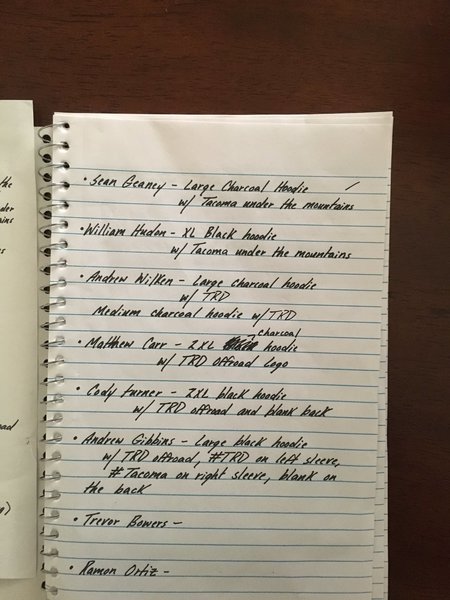 the
der
ains
s
• Sean Geaney - Large Charcoal Hoodie /
w/ Tacoma under the mountains
• William Hudon - XL Black hoodie
w/ Tacoma under the mountains
• Andrew Wilken - Large charcoal hoodie
w/ TRD
Medium charcoal hoodie w/ TRD
charcoal
• Matthew Carr - 2XL hoodie
w/ TRD offroad Logo
• Cody Turner - 2XL black hoodie
w/ TRD offroad and blank back
oad
• Andrew Gibbins - Large black hoodie
w/ TRD offroad, #TRD on left sleeve,
# Tacoma on right sleeve, blank on
the back
g)
• Trevor Bowers -
• Ramon Ortiz -